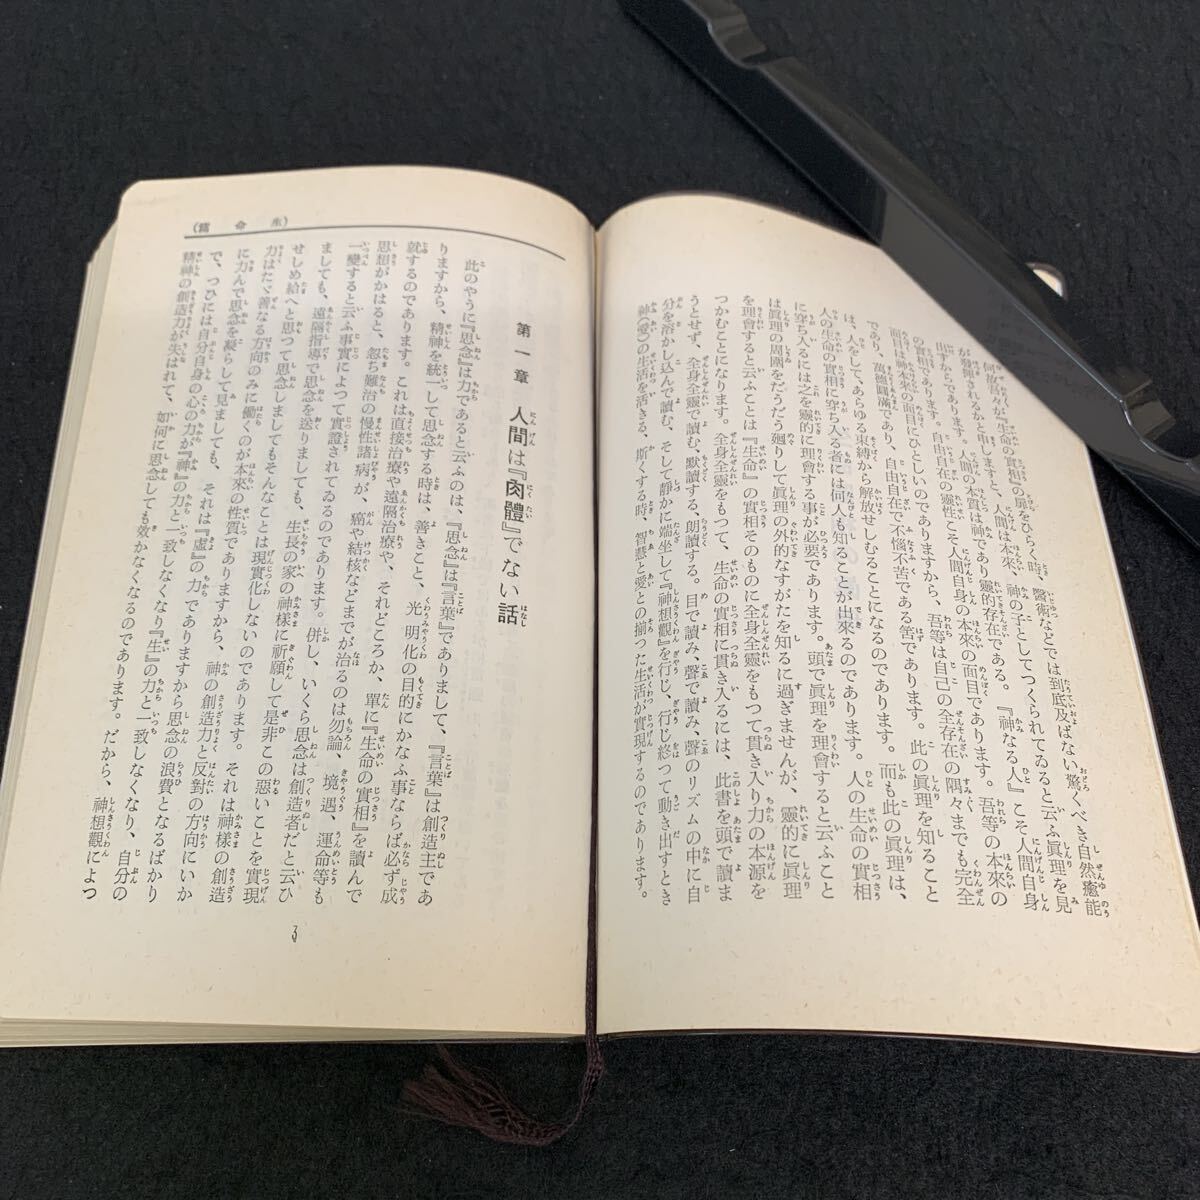 何故吾々が『生命の實相』の扉をひらく時、醫術などでは到底及ばない驚くべき自然癒能
が發揮されるかと申しますと、人間は本來、神の子としてつくられてゐると云ふ眞理を見
出すからであります。人間の本質は神であり靈的存在である。『神なる人』こそ人間自身
の實相であります。自由自在の靈性こそ人間自身の本來の面目であります。吾等の本來の
面目は神本來の面目にひとしいのでありますから、吾等は自己の全存在の隅々までも完全
であり、萬德圓滿であり、自由自在で不惱不苦である筈であります。此の眞理を知ること
は、人をして、あらゆる束縛から解放せしむることになるのであります。而も此の眞理は、
人の生命の實相に穿ち入る者には何人も知ることが出來るのであります。人の生命の實相
に穿ち入るには之を靈的に理會する事が必要であります。頭で眞理を理會すると云ふこと
は眞理の周圍をだうだう廻りして眞理の外的なすがたを知るに過ぎませんが、靈的に眞理
を理會すると云ふことは『生命』の實相そのものに全身全靈をもつて貫き入り力の本源を
つかむことになります。全身全靈をもつて、生命の實相に貫き入るには、此書を頭で讀ま
うとせず、全身全靈で讀む、默讀する、朗讀する。目で讀み、聲で讀み、聲のリズムの中に自
分を溶かし込んで讀む、そして靜かに端坐して『神想觀』を行じ、行じ終つて動き出すとき
神(愛)の生活を活きる、斯くする時、智慧と愛との揃つた生活が實現するのであります。
(生命篇)
第一章 人間は『肉體』でない話
此のやうに『思念』は力であると云ふのは、『思念』は『言葉』でありまして、『言葉』は創造主であ
りますから、精神を統一して思念する時は、善きこと、光明化の目的にかなふ事ならば必ず成
就するのであります。これは直接治療や遠隔治療や、それどころか、單に『生命の實相』を讀んで
思想がかはると、忽ち難治の慢性諸病が、癌や結核などまでが治るのは勿論、境遇、運命等も
一變すると云ふ事實によつて實證されてゐるのであります。併し、いくら思念は創造者だと云ひ
ましても、遠隔指導で思念を送りましても、生長の家の神樣に祈願して是非この惡いことを實現
せしめ給へと思つて思念しましてもそんなことは現實化しないのであります。それは神樣の創造
力はたゞ善なる方向のみに働くのが本來の性質でありますから、神の創造力と反對の方向にいか
に力んで思念を凝らして見ましても、それは『虛』の力でありますから思念の浪費となるばかり
で、つひには自分自身の心の力が『神』の力と一致しなくなり『生』の力と一致しなくなり、自分の
精神の創造力が失はれて、如何に思念しても效かなくなるのであります。だから、神想觀によつ
3